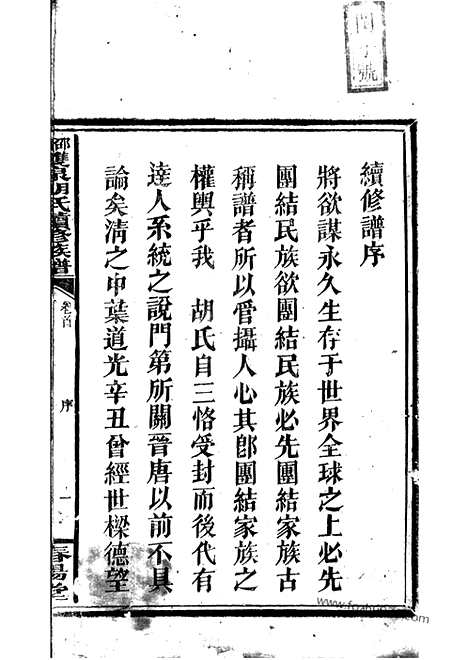 續修譜序
將欲謀永久生存于世界全球之上必先
團結民族欲團結民族必先團結家族古
稱譜者所以管攝人心其卽團結家族之
權輿乎我　胡氏自三恪受封而後代有
達人系統之說門第所關晉唐以前不具
論矣清之中葉道光辛丑曾經世樑德望
邵雙泉胡氏續修族譜
卷首
序
一
春陽堂
號